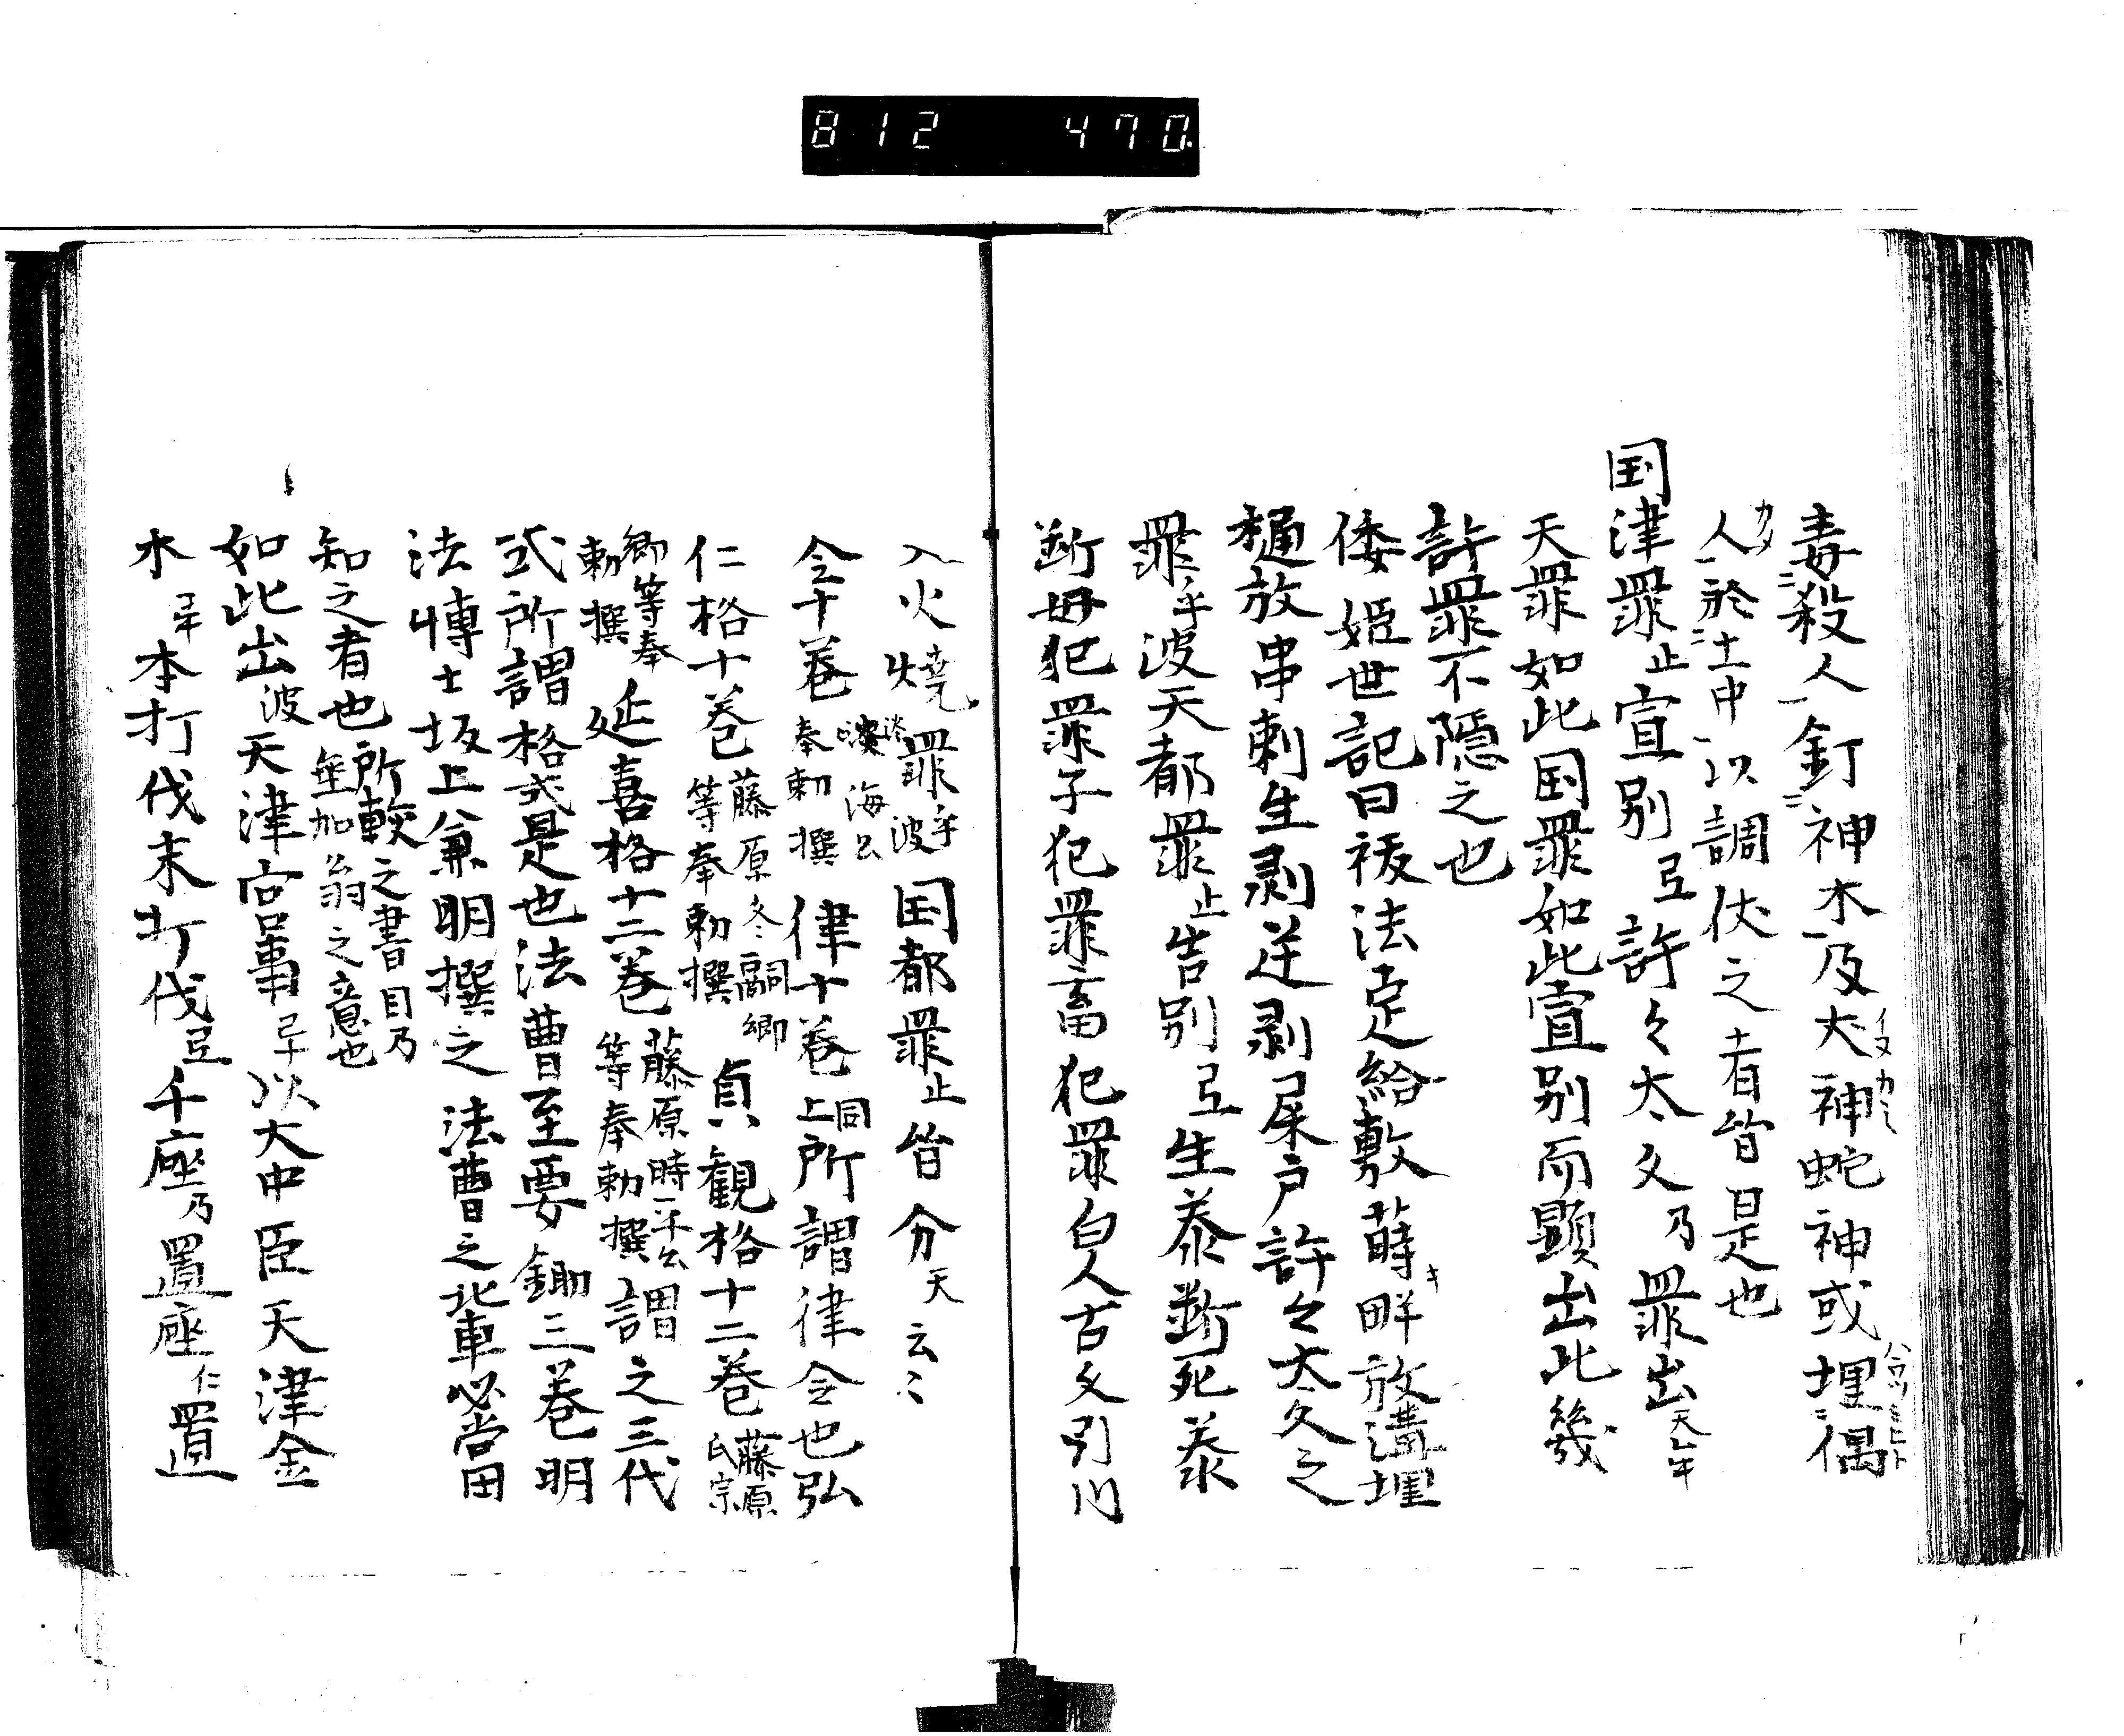 812 470.
毒殺人釘神木及犬神蛇神或埋偶
人於土中以調伏之者皆是也
国津罪止宣別弖許々太久乃罪出天年
天罪如此国罪如此宣別而顕出此幾
許罪不隠之也
倭姫世記曰祓法定給敷蒔畔放溝埋
樋放串刺生剥逆剥屎戸許々太久之
罪乎波天都罪止告別弖生秦断死秦
断母犯罪子犯罪畜犯罪白人古久引川
入火焼罪乎波国都罪止皆分天云々
令十巻 淡海公奉勅撰 律十巻 同上 所謂律令也弘
仁格十巻 藤原冬嗣卿等奉勅撰 貞観格十二巻 藤原氏宗
卿等奉勅撰 延喜格十二巻 藤原時平公等奉勅撰 謂之三代
式所謂格式是也法曹至要鋤三巻明
法博士坂上兼明撰之法曹之北車必当田
知之者也 所載之書目乃垂加翁之意也
如此出波天津宮事弖以大中臣天津金
木乎本打伐末打伐弖千座乃置座仁置